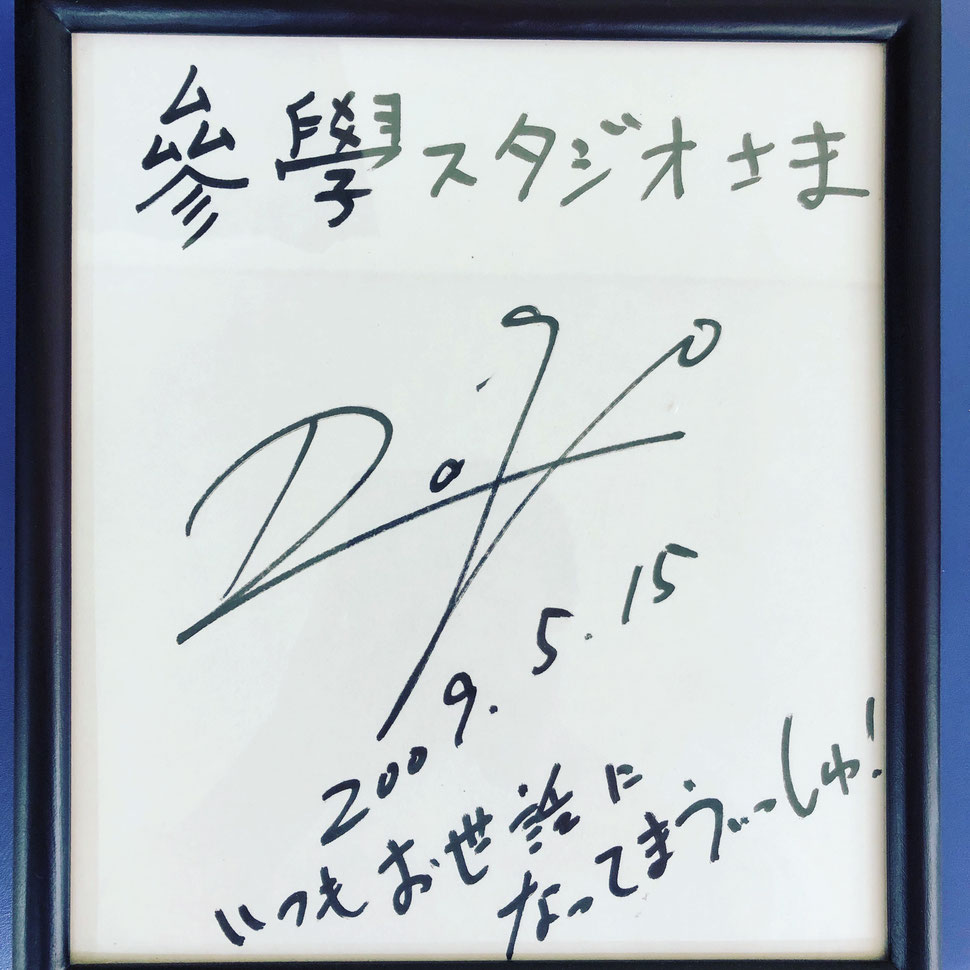 參學スタジオさま
Daigo
2009.5.15
いつもお世話に
なってまうぃっしゅ!